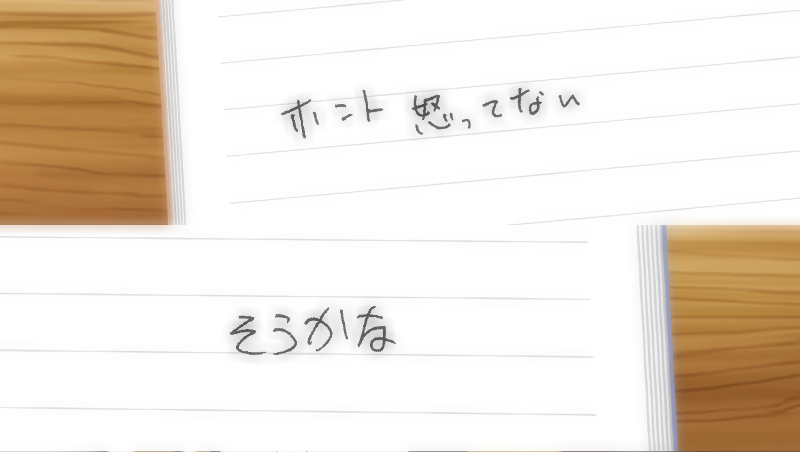 ホント怒ってない
そうかな